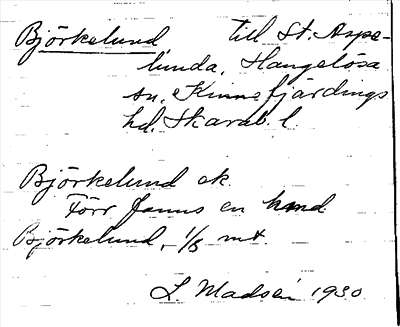 Björkelund, till St. Aspe-
lunda, Hangelösa
sn, Kinnefjärdings
hd. Skarab. l.
Björkelund ek.
Förr fanns en hmd.
Björkelund, 1/8 mt.
L. Madsén 1930